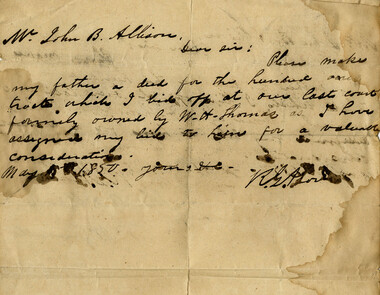 Mr John B. Allison.
Dear sir: Please make
my father a deed for the hundred
tract, which I bid off at our last court
formerly owned by W. H. Thomas as I have
assigned my bid to him for a valuable
consideration.
May 1850. yours &c